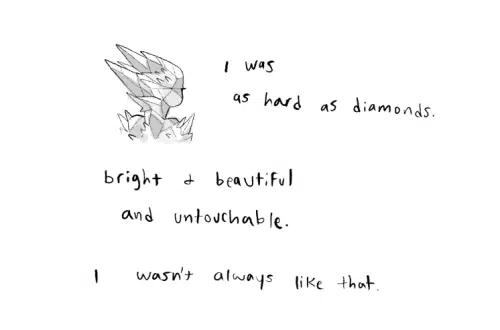 I was
as hard as diamonds.
bright & beautiful
and untouchable.
I wasn't always like that.